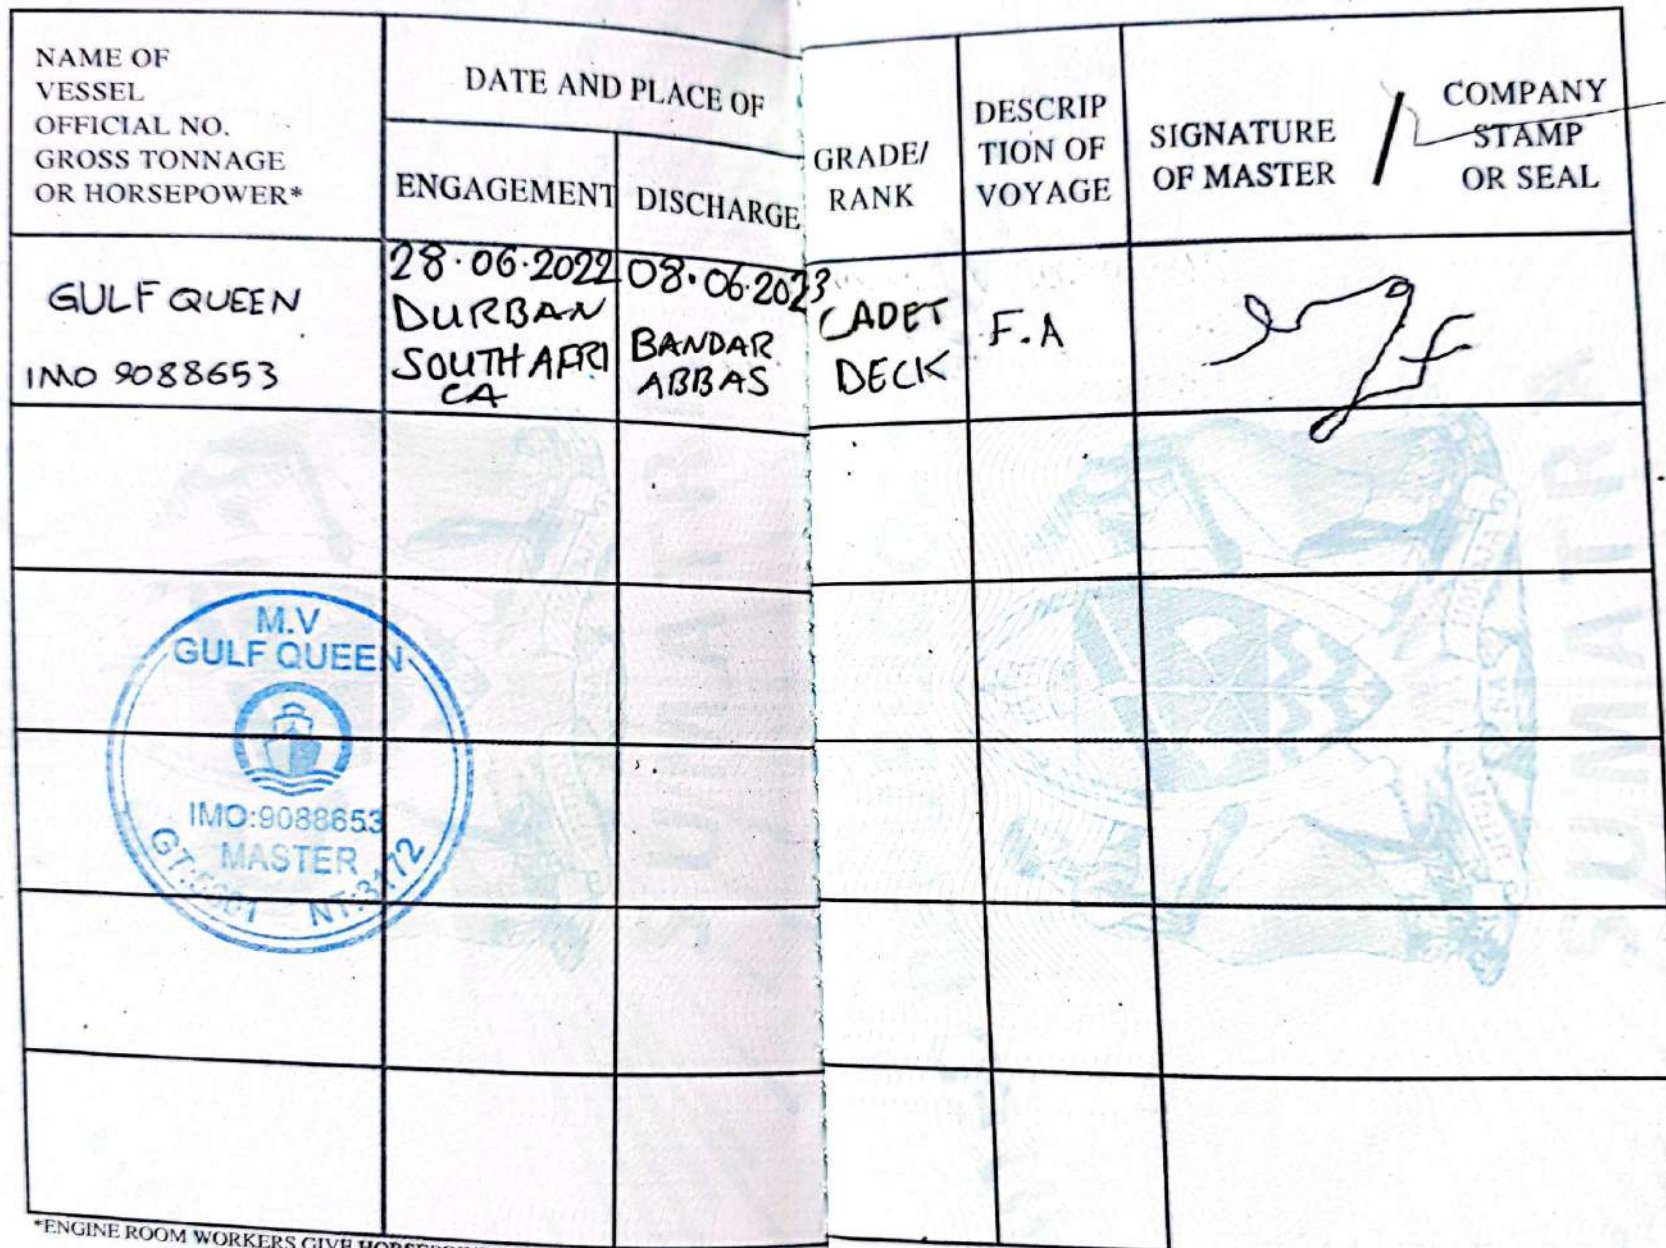 NAME OF
VESSEL
OFFICIAL NO.
GROSS TONNAGE
OR HORSEPOWER*
DATE AND PLACE OF
ENGAGEMENT
DISCHARGE
GRADE/
RANK
DESCRIP
TION OF
VOYAGE
SIGNATURE
OF MASTER
/
COMPANY
STAMP
OR SEAL
GULF QUEEN
IMO 9088653
28.06.2022
DURBAN
SOUTH AFRI
CA
08.06.2023
BANDAR
ABBAS
CADET
DECK
F.A
M.V
GULF QUEEN
IMO:9088653
MASTER
NT:3172
*ENGINE ROOM WORKERS GIVE